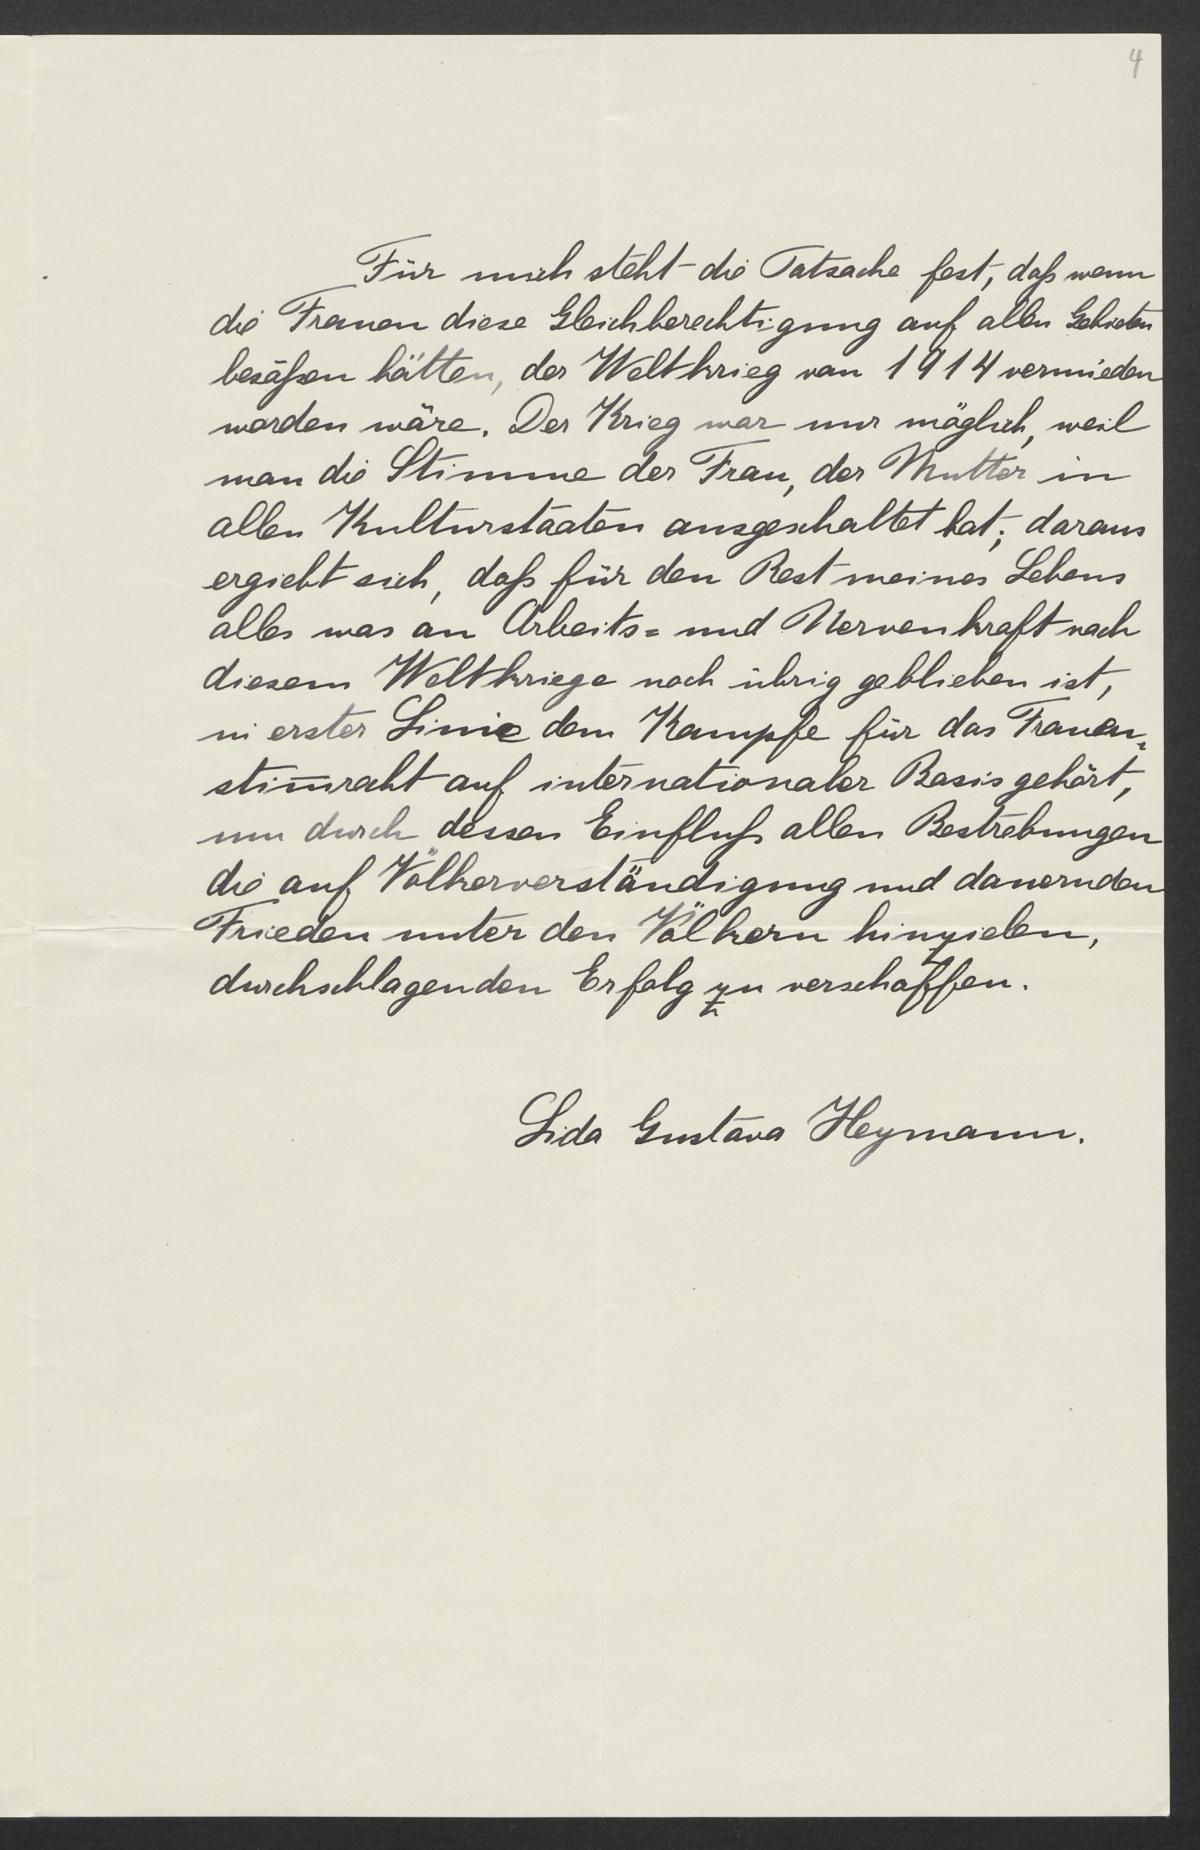 4
Für mich steht die Tatsache fest, daß wenn
die Frauen diese Gleichberechtigung auf allen Gebieten
besäßen hätten, der Weltkrieg von 1914 vermieden
worden wäre. Der Krieg war nur möglich, weil
man die Stimme der Frau, der Mutter in
allen Kulturstaaten ausgeschaltet hat; daraus
ergiebt sich, daß für den Rest meines Lebens
alles was an Arbeits= und Nervenkraft nach
diesem Weltkriege noch übrig geblieben ist,
in erster Linie dem Kampfe für das Frauen=
stim̅recht auf internationaler Basis gehört,
um durch dessen Einfluß allen Bestrebungen
die auf Völkerverständigung und dauernden
Frieden unter den Völkern hinzielen,
durchschlagenden Erfolg zu verschaffen.
Lida Gustava Heymann.